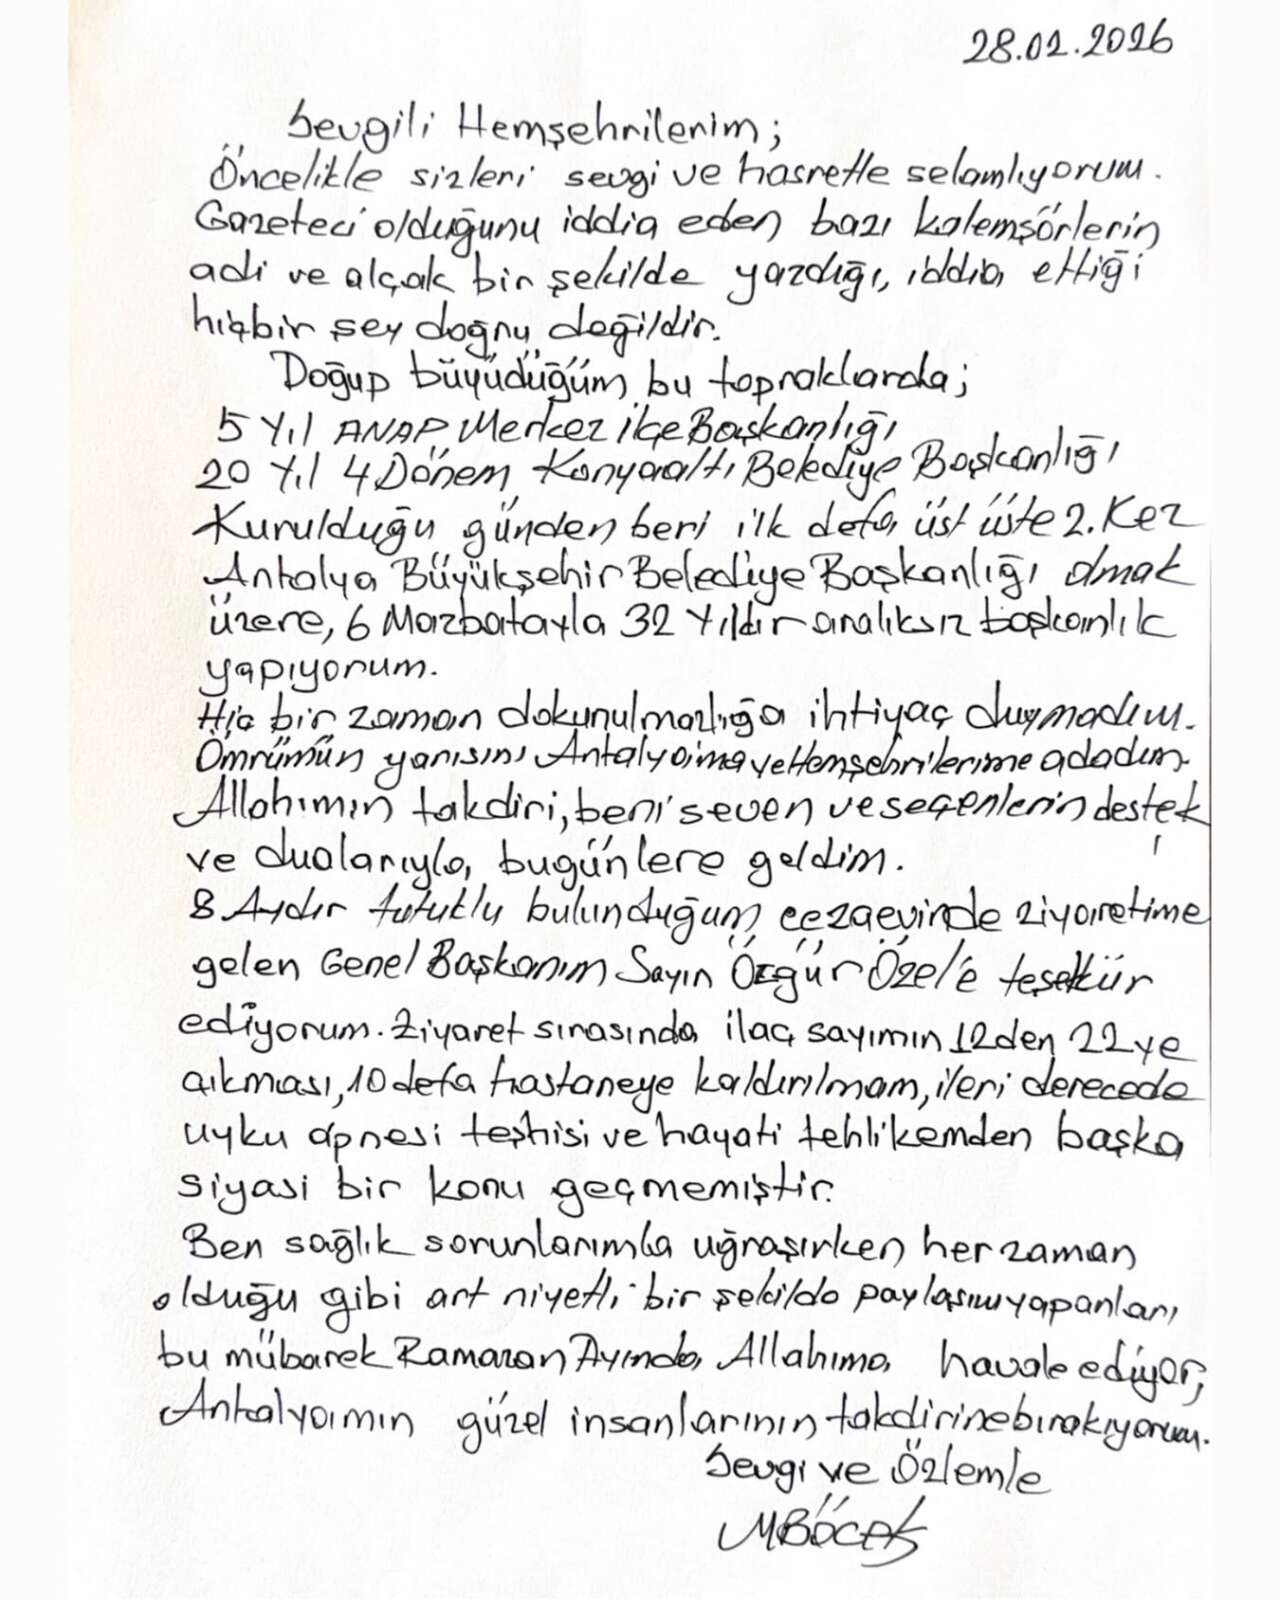 28.02.2026
Sevgili Hemşehrilerim;
Öncelikle sizleri sevgi ve hasretle selamlıyorum.
Gazeteci olduğunu iddia eden bazı kalemşörlerin
adi ve alçak bir şekilde yazdığı, iddia ettiği
hiçbir şey doğru değildir.
Doğup büyüdüğüm bu topraklarda;
5 Yıl ANAP Merkez ilçe Başkanlığı
20 Yıl 4 Dönem Konyaaltı Belediye Başkanlığı
Kurulduğu günden beri ilk defa üst üste 2. Kez
Antalya Büyükşehir Belediye Başkanlığı olmak
üzere, 6 Mazbatayla 32 Yıldır aralıksız başkanlık
yapıyorum.
Hiç bir zaman dokunulmazlığa ihtiyaç duymadım.
Ömrümün yarısını Antalyaıma ve Hemşehrilerime adadım.
Allahımın takdiri, beni seven ve seçenlerin destek
ve dualarıyla, bugünlere geldim.
8 Aydır tutuklu bulunduğum cezaevinde ziyaretime
gelen Genel Başkanım Sayın Özgür Özel'e teşekkür
ediyorum. Ziyaret sırasında ilaç sayımın 12den 22ye
çıkması, 10 defa hastaneye kaldırılmam, ileri derecede
uyku apnesi teşhisi ve hayati tehlikemden başka
siyasi bir konu geçmemiştir.
Ben sağlık sorunlarımla uğraşırken her zaman
olduğu gibi art niyetli bir şekilde paylaşım yapanları
bu mübarek Ramazan Ayında, Allahıma havale ediyor,
Antalyaımın güzel insanlarının takdirine bırakıyorum.
Sevgi ve Özlemle
MBÖCEK